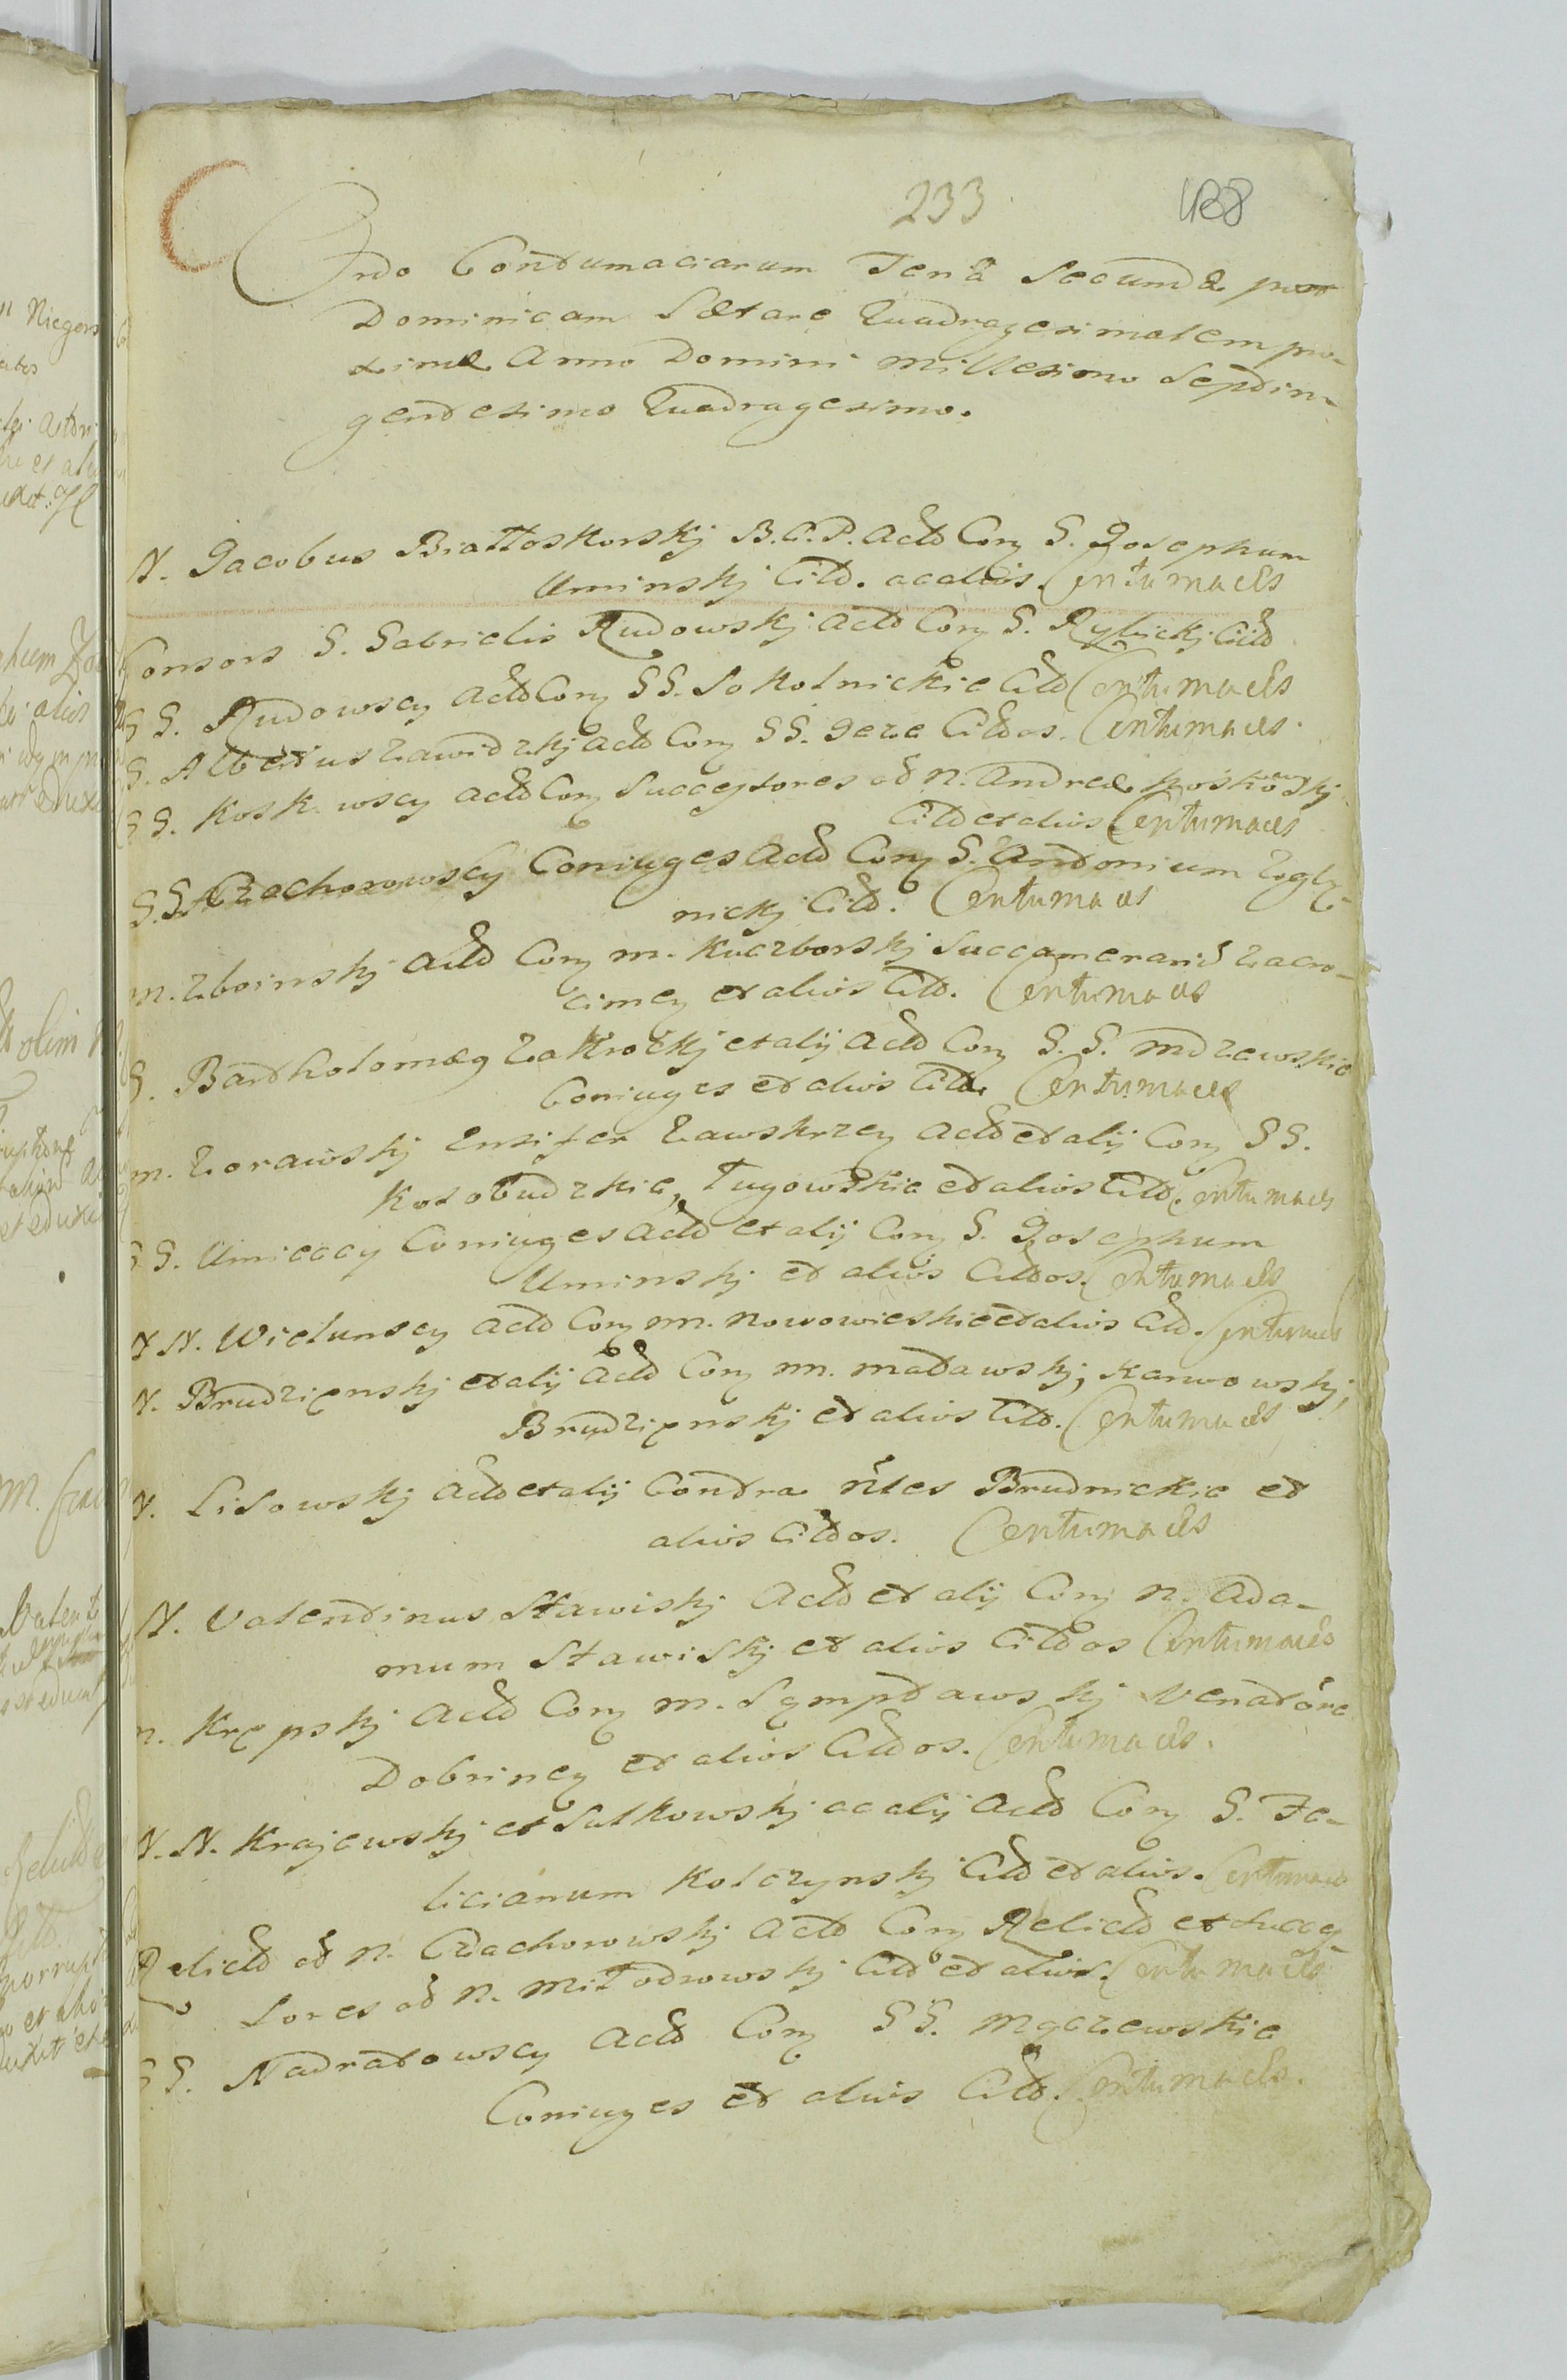 233 438
Ordo Contumaciarum Feria Secunda post
Dominicam Lætare Quadragesimalem pro-
xima Anno Domini Millesimo Septin-
gentesimo Quadragesimo.
N. Jacobus Białłoskorskj B. C. P. Actt Con S. Josephum
Uminskj Citt. ac alios. Contumaces
Consors G. Gabrielis Rudowskj Actt Con G. Rybickj Citt
GG. Rudowscy Actt Con GG. Sokolnickie Citt Contumaces
G. Albertus Zawidzkj Actt Con GG. Jeze Cittos. Contumaces.
GG. Kosk wscy Actt Con Successores ol N. Andreæ Koskowskj
Citt et alios Contumaces
G.G. Czachorowscy Coniuges Actt Con G. Antonium Zglę-
nickj Citt. Contumaces
M. Zboinskj Actt Con M. Kuczborskj Succamerariu Zacro-
cimen et alios Citt. Contumaces
G. Bartholomæg Zakrockj et alij Actt Con G. G. Mdzewskie
Coniuges et alios Citt. Contumaces
M. Zorawskj Ensifer Zawskrzen Actt et alij Con GG.
Kosobudzkie, Tugowskie et alios Citt. Contumaces
GG. Umieccy Coniuges Actt et alij Con G. Josephum
Uminskj et alios Cittos. Contumaces
NN. Wielunscy Actt Con M. Nowowieskie et alios Citt. Contumaces
N. Brudzięnskj et alij Actt Con M. Madawskj, Karwowskj,
Brudzięnskj et alios Citt. Contumaces
N. Lisowskj Actt et alij Contra Nles Brudnickie et
alios Cittos. Contumaces
N. Valentinus Stawiskj Actt et alij Con N. Ada-
mum Stawiskj et alios Cittos Contumaces
N. Krępskj Actt Con M. Sęmptawskj Venatore
Dobrinen et alios Cittos. Contumaces.
N.N. Krajewskj et Sulkowskj ac alij Actt Con G. Fe-
licianum Kolczynskj Citt et alios. Contumaces
Relictt ol N. Czachorowskj Actt Con Relictt et Succes
sores ol N. Miłodrowskj Citt et alios. Contumaces
GG. Nadratowscy Actt Con GG. Mączewskie
Coniuges et alios Citt. Contumaces.